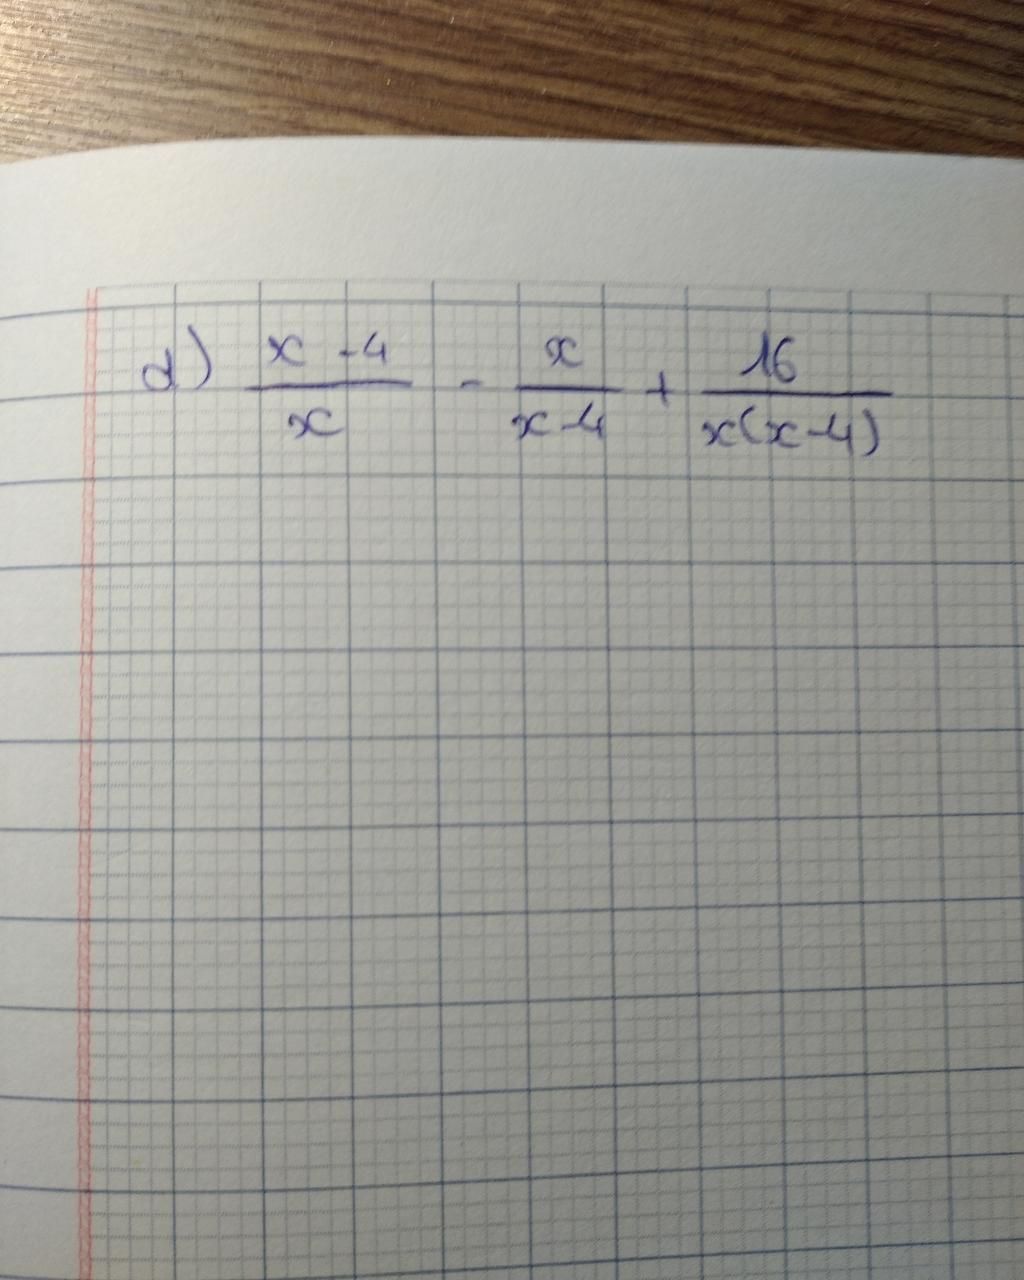 d) \frac{x-4}{x} - \frac{x}{x-4} + \frac{16}{x(x-4)}